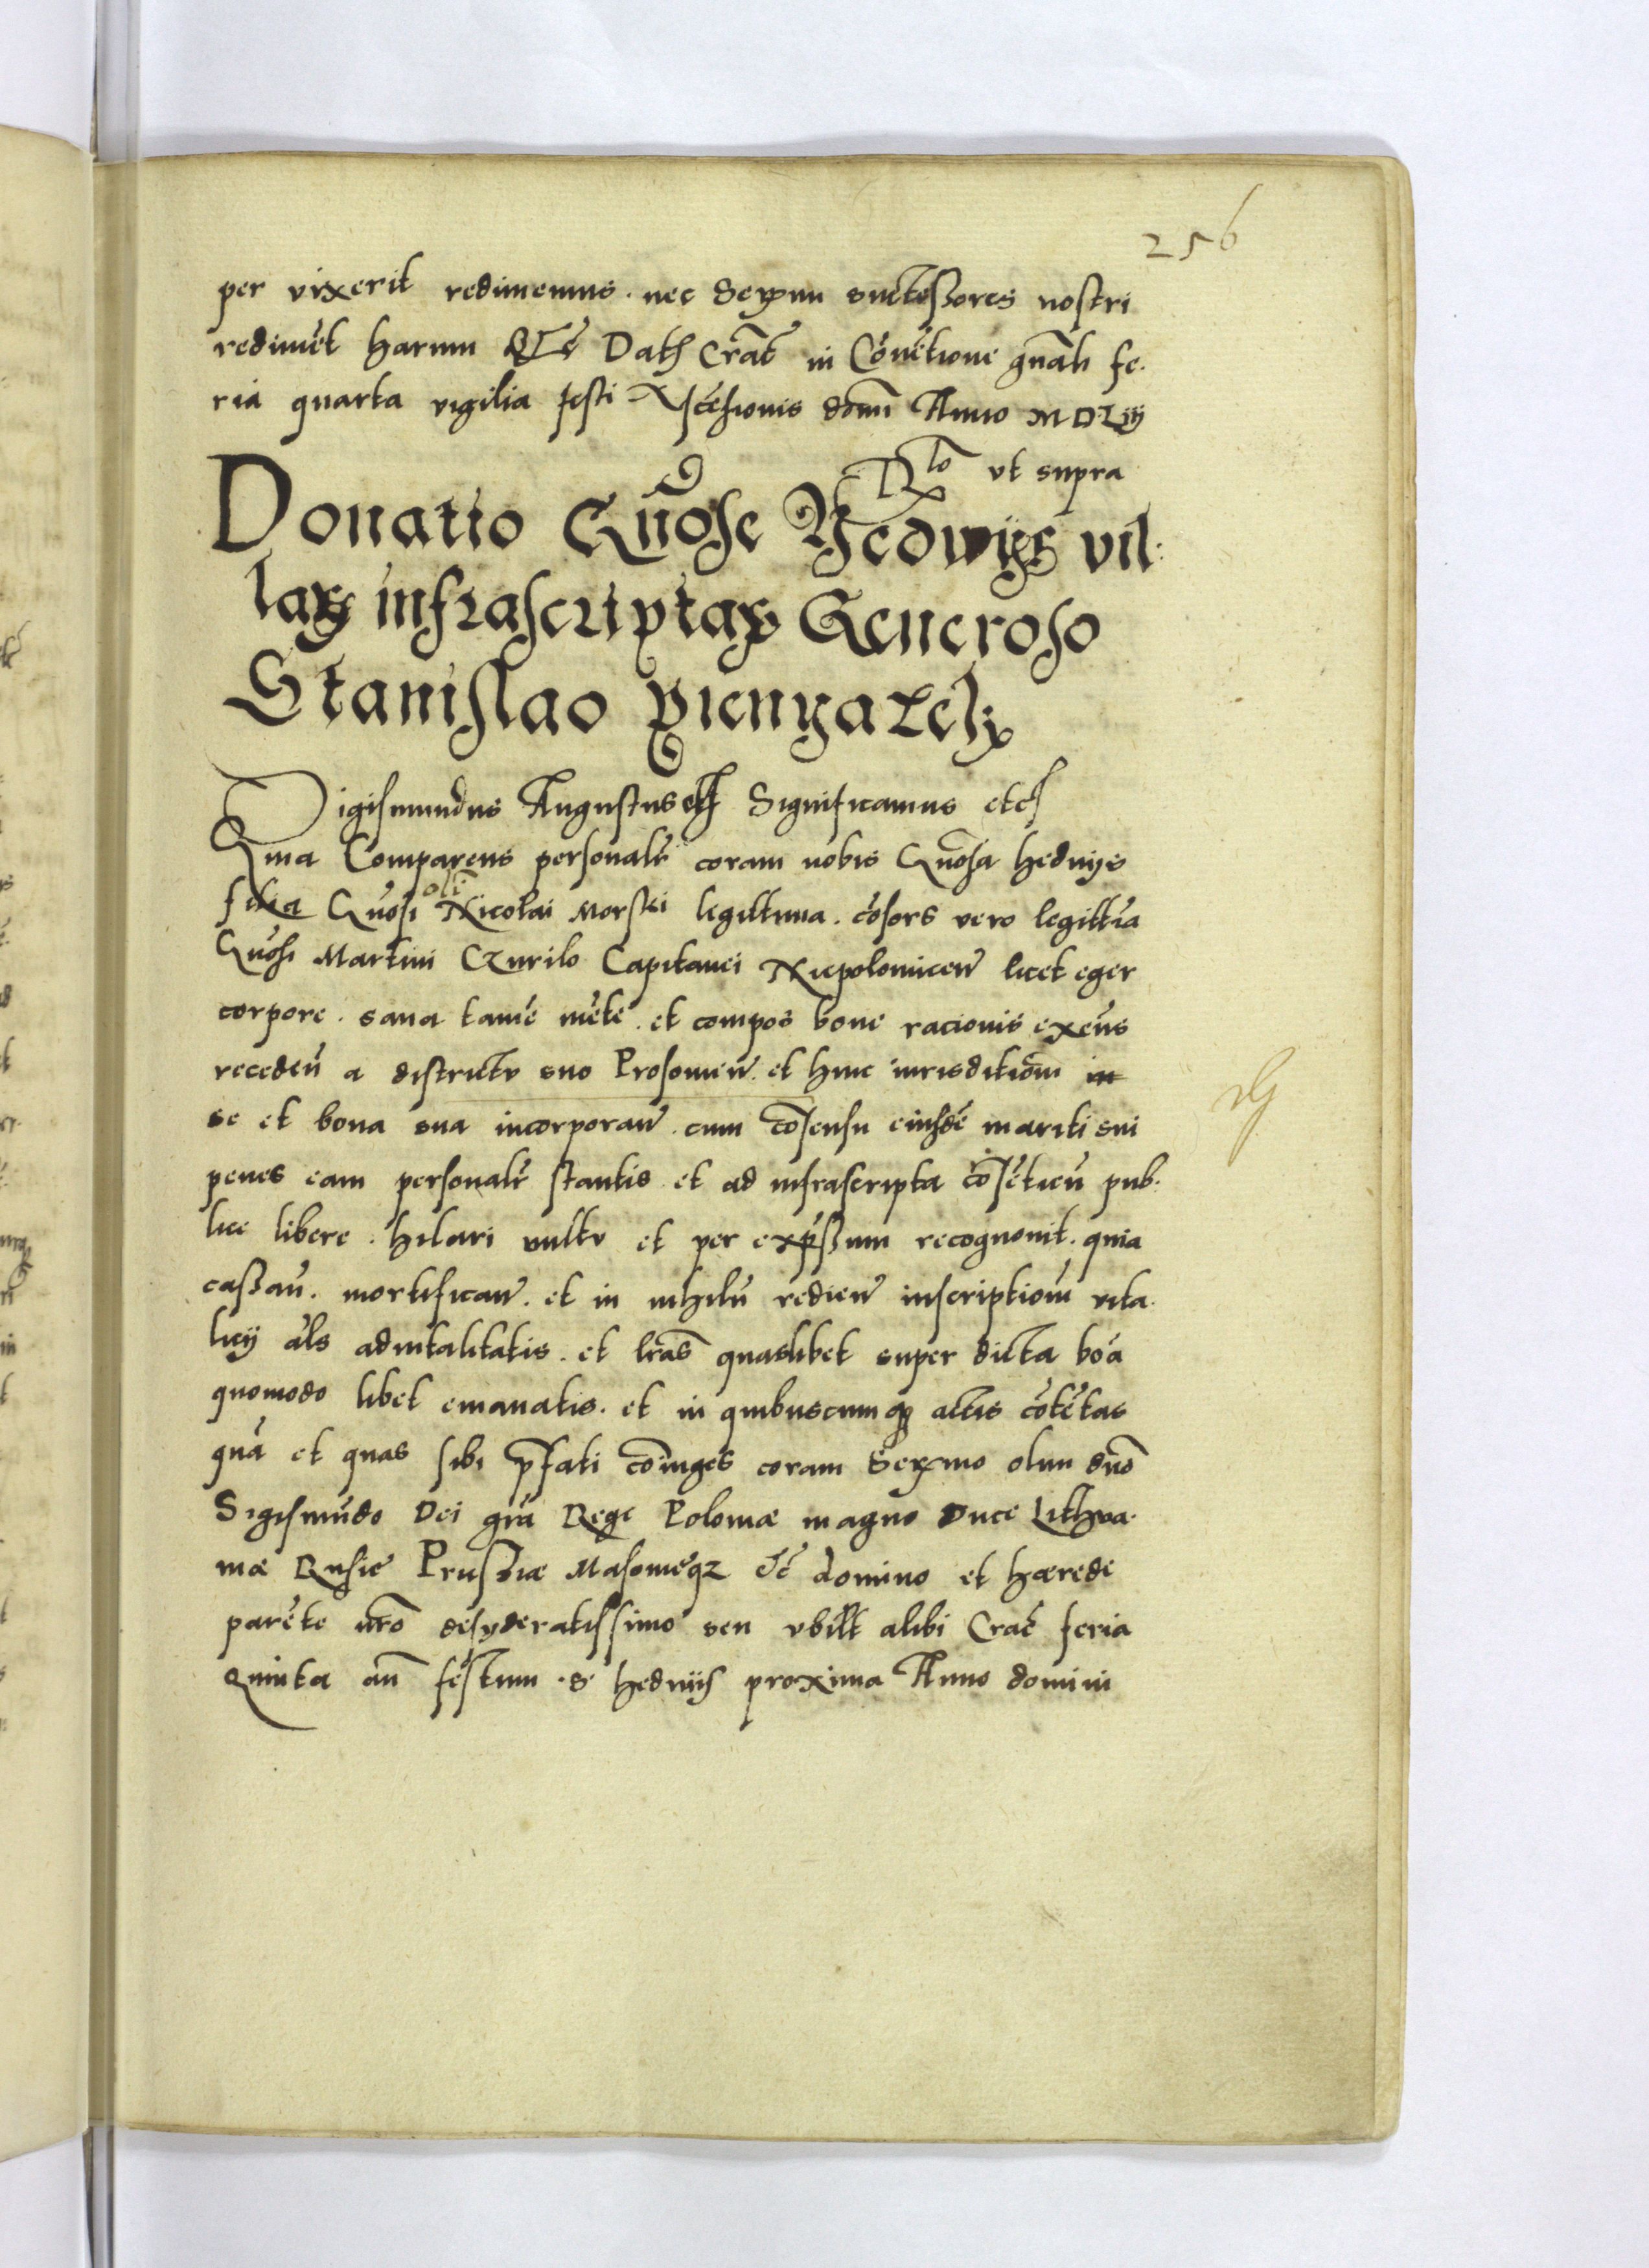 256
per vixerit redimemus. nec Serm̄i successores nostri
redimēt harum &c̄ Dat̄ Crāc in Cōvētione gnāli fe.
ria quarta vigilia festi Ascēsionis domī Anno MDLij
Rlō vt supra
Donatio Gn̄ose Hedwigis vil:
larꝝ infrascriptarꝝ Generoso
Stanislao Pienyazek
Sigismundus Augustus etc̄ Significamus etc̄
Quia Comparens personalr̄ coram nobis Gn̄osa Hedvijs
filia Gn̄osi olī Nicolai Morski legittima. cōsors vero legittīa
Gn̄osi Martini Czurilo Capitanei Niepolomicen̄ licet eger
corpore. sana tamē mēte. et compos bone racionis exn̄s
receden̄ a districtu suo Proſovien̄. et huic iurisditiōni in
se et bona sua incorporan̄. cum cōsensu eiusdē mariti sui
penes eam personalr̄ stantis et ad infrascripta cōsētien̄ pub:
lice libere. hilari vultu et per expr̄ssum recognovit. quia
cassan̄. mortifican̄. et in nihilū redien̄ inscriptionē vita.
licij āls advitalitatis. et lrās quaslibet super dicta boā
quomodo libet emanatis. et in quibuscumqꝫ actis cōtētas
quā et quas sibi p̄fati cōiuges coram Sermo olim dn̄o
Sigismūdo Dei grā Rege Poloniæ magno Duce Lithva.
niæ Rusie Prussiæ Masovieqꝫ &c̄ domino et hærede
parēte nr̄o desyderatissimo seu vbilt alibi Crāc feria
Quinta an̄ festum S. Hedvijs proxima Anno domini